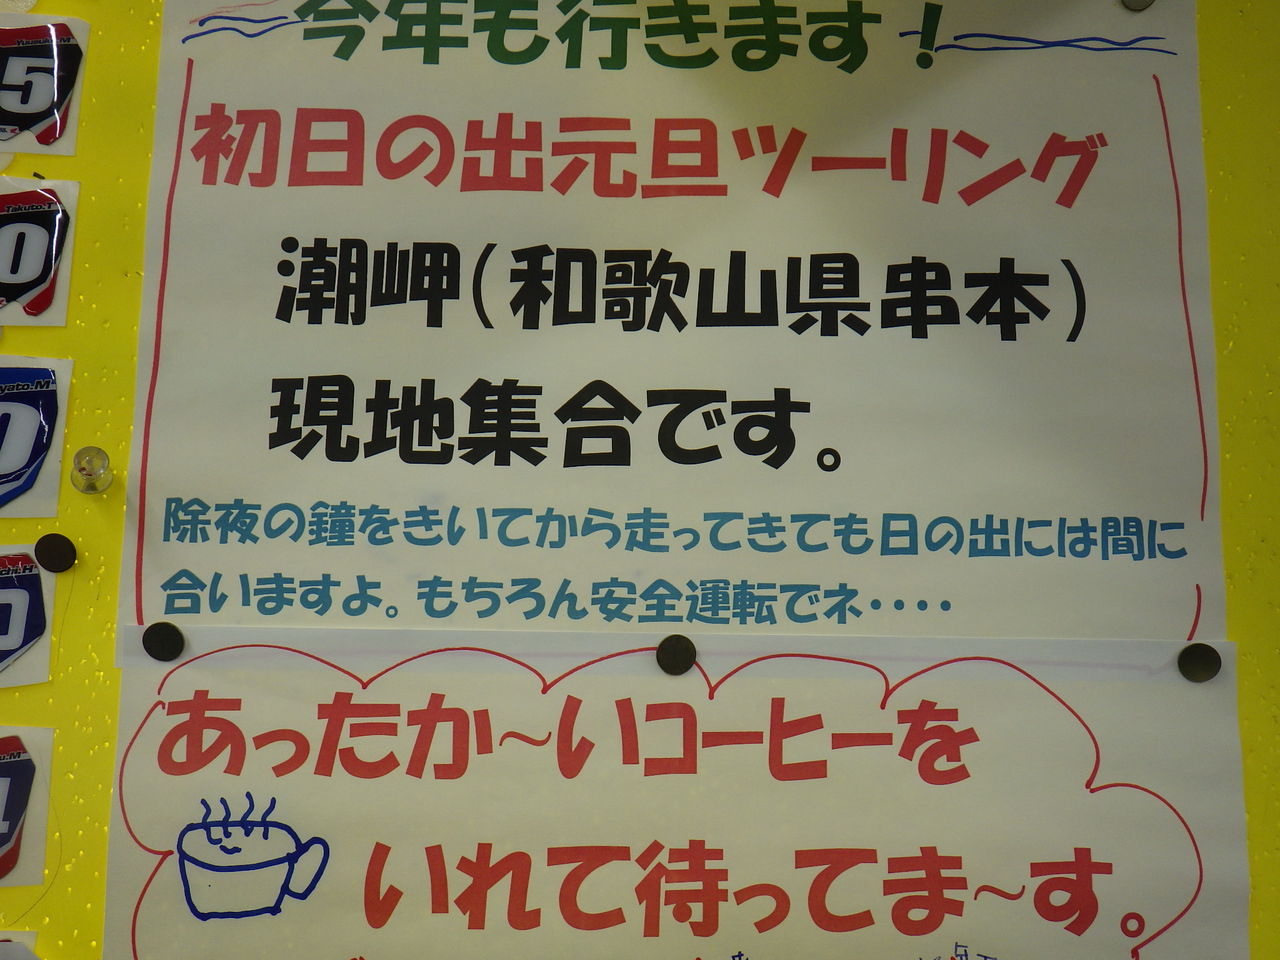 今年も行きます！
初日の出元旦ツーリング
潮岬(和歌山県串本)
現地集合です。
除夜の鐘をきいてから走ってきても日の出には間に
合いますよ。もちろん安全運転でネ・・・・
あったか～いコーヒーを
いれて待ってま～す。
Yuusuke.M
5
Takuto.T
0
yato.M
0
chi.H
0
u.M
1